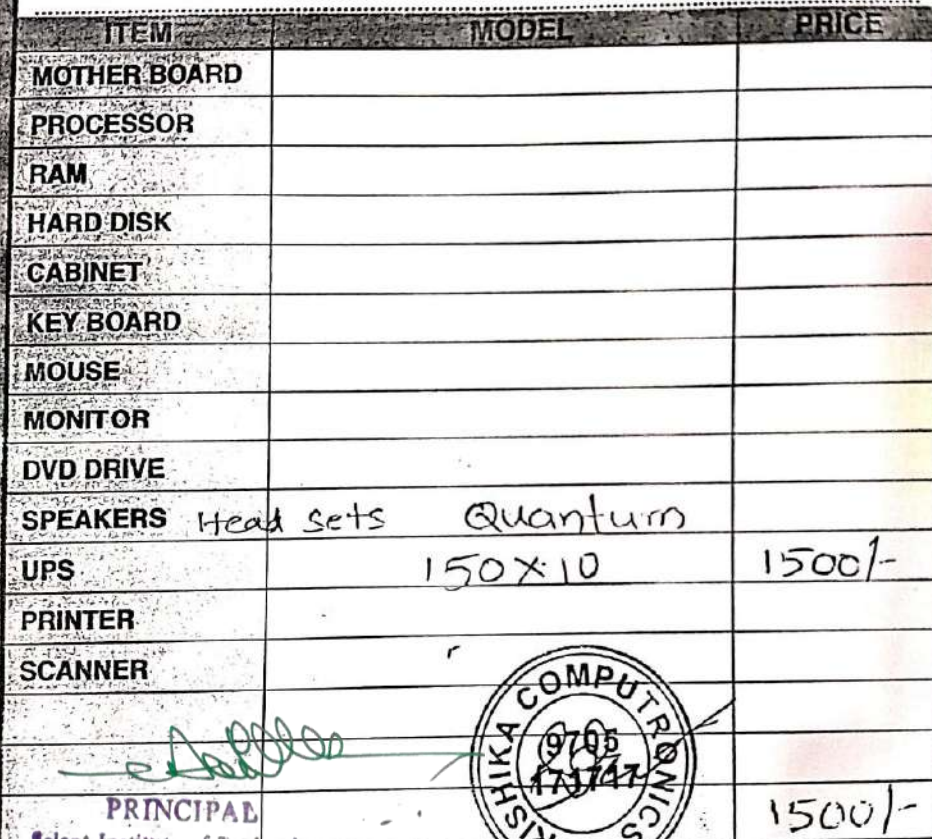 ITEM MODEL PRICE
MOTHER BOARD
PROCESSOR
RAM
HARD DISK
CABINET
KEY BOARD
MOUSE
MONITOR
DVD DRIVE
SPEAKERS Head Sets Quantum
UPS 150X10 1500/-
PRINTER
SCANNER
RISHIKA COMPUTRONICS
9705
171717
PRINCIPAL
1500/-